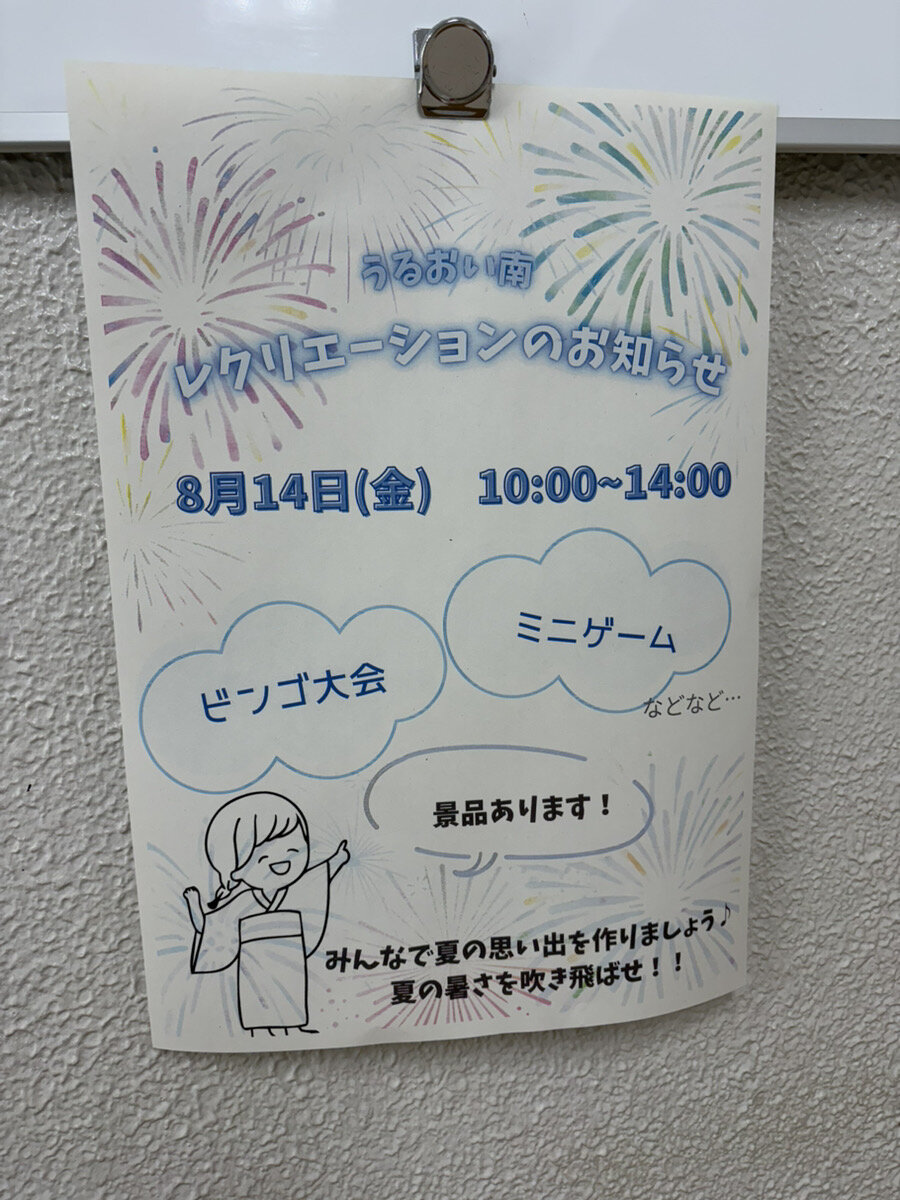 うるおい南
レクリエーションのお知らせ
8月14日(金) 10:00~14:00
ミニゲーム
ビンゴ大会
などなど…
景品あります！
みんなで夏の思い出を作りましょう♪
夏の暑さを吹き飛ばせ！！